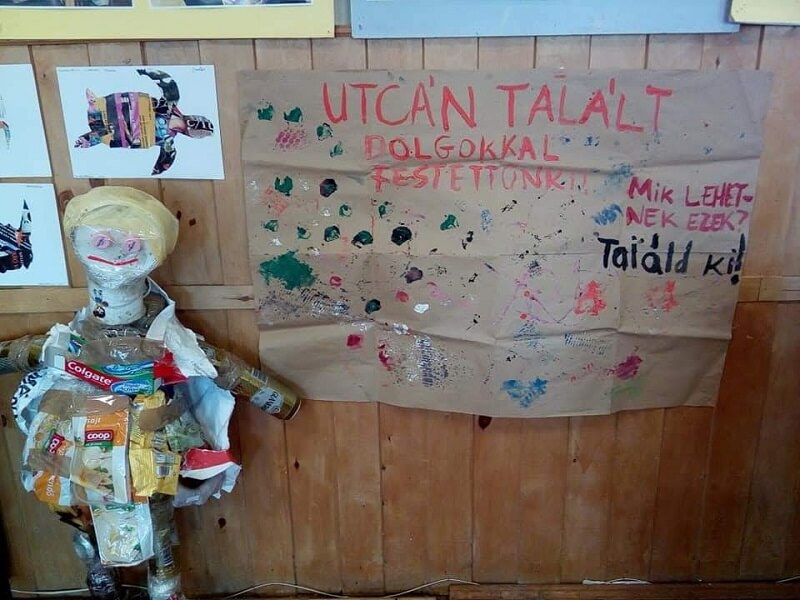 UTCÁN TALÁLT
DOLGOKKAL
FESTETTÜNK!!
MIK LEHET-
NEK EZEK?
Találd ki!
Colgate
coop
coop